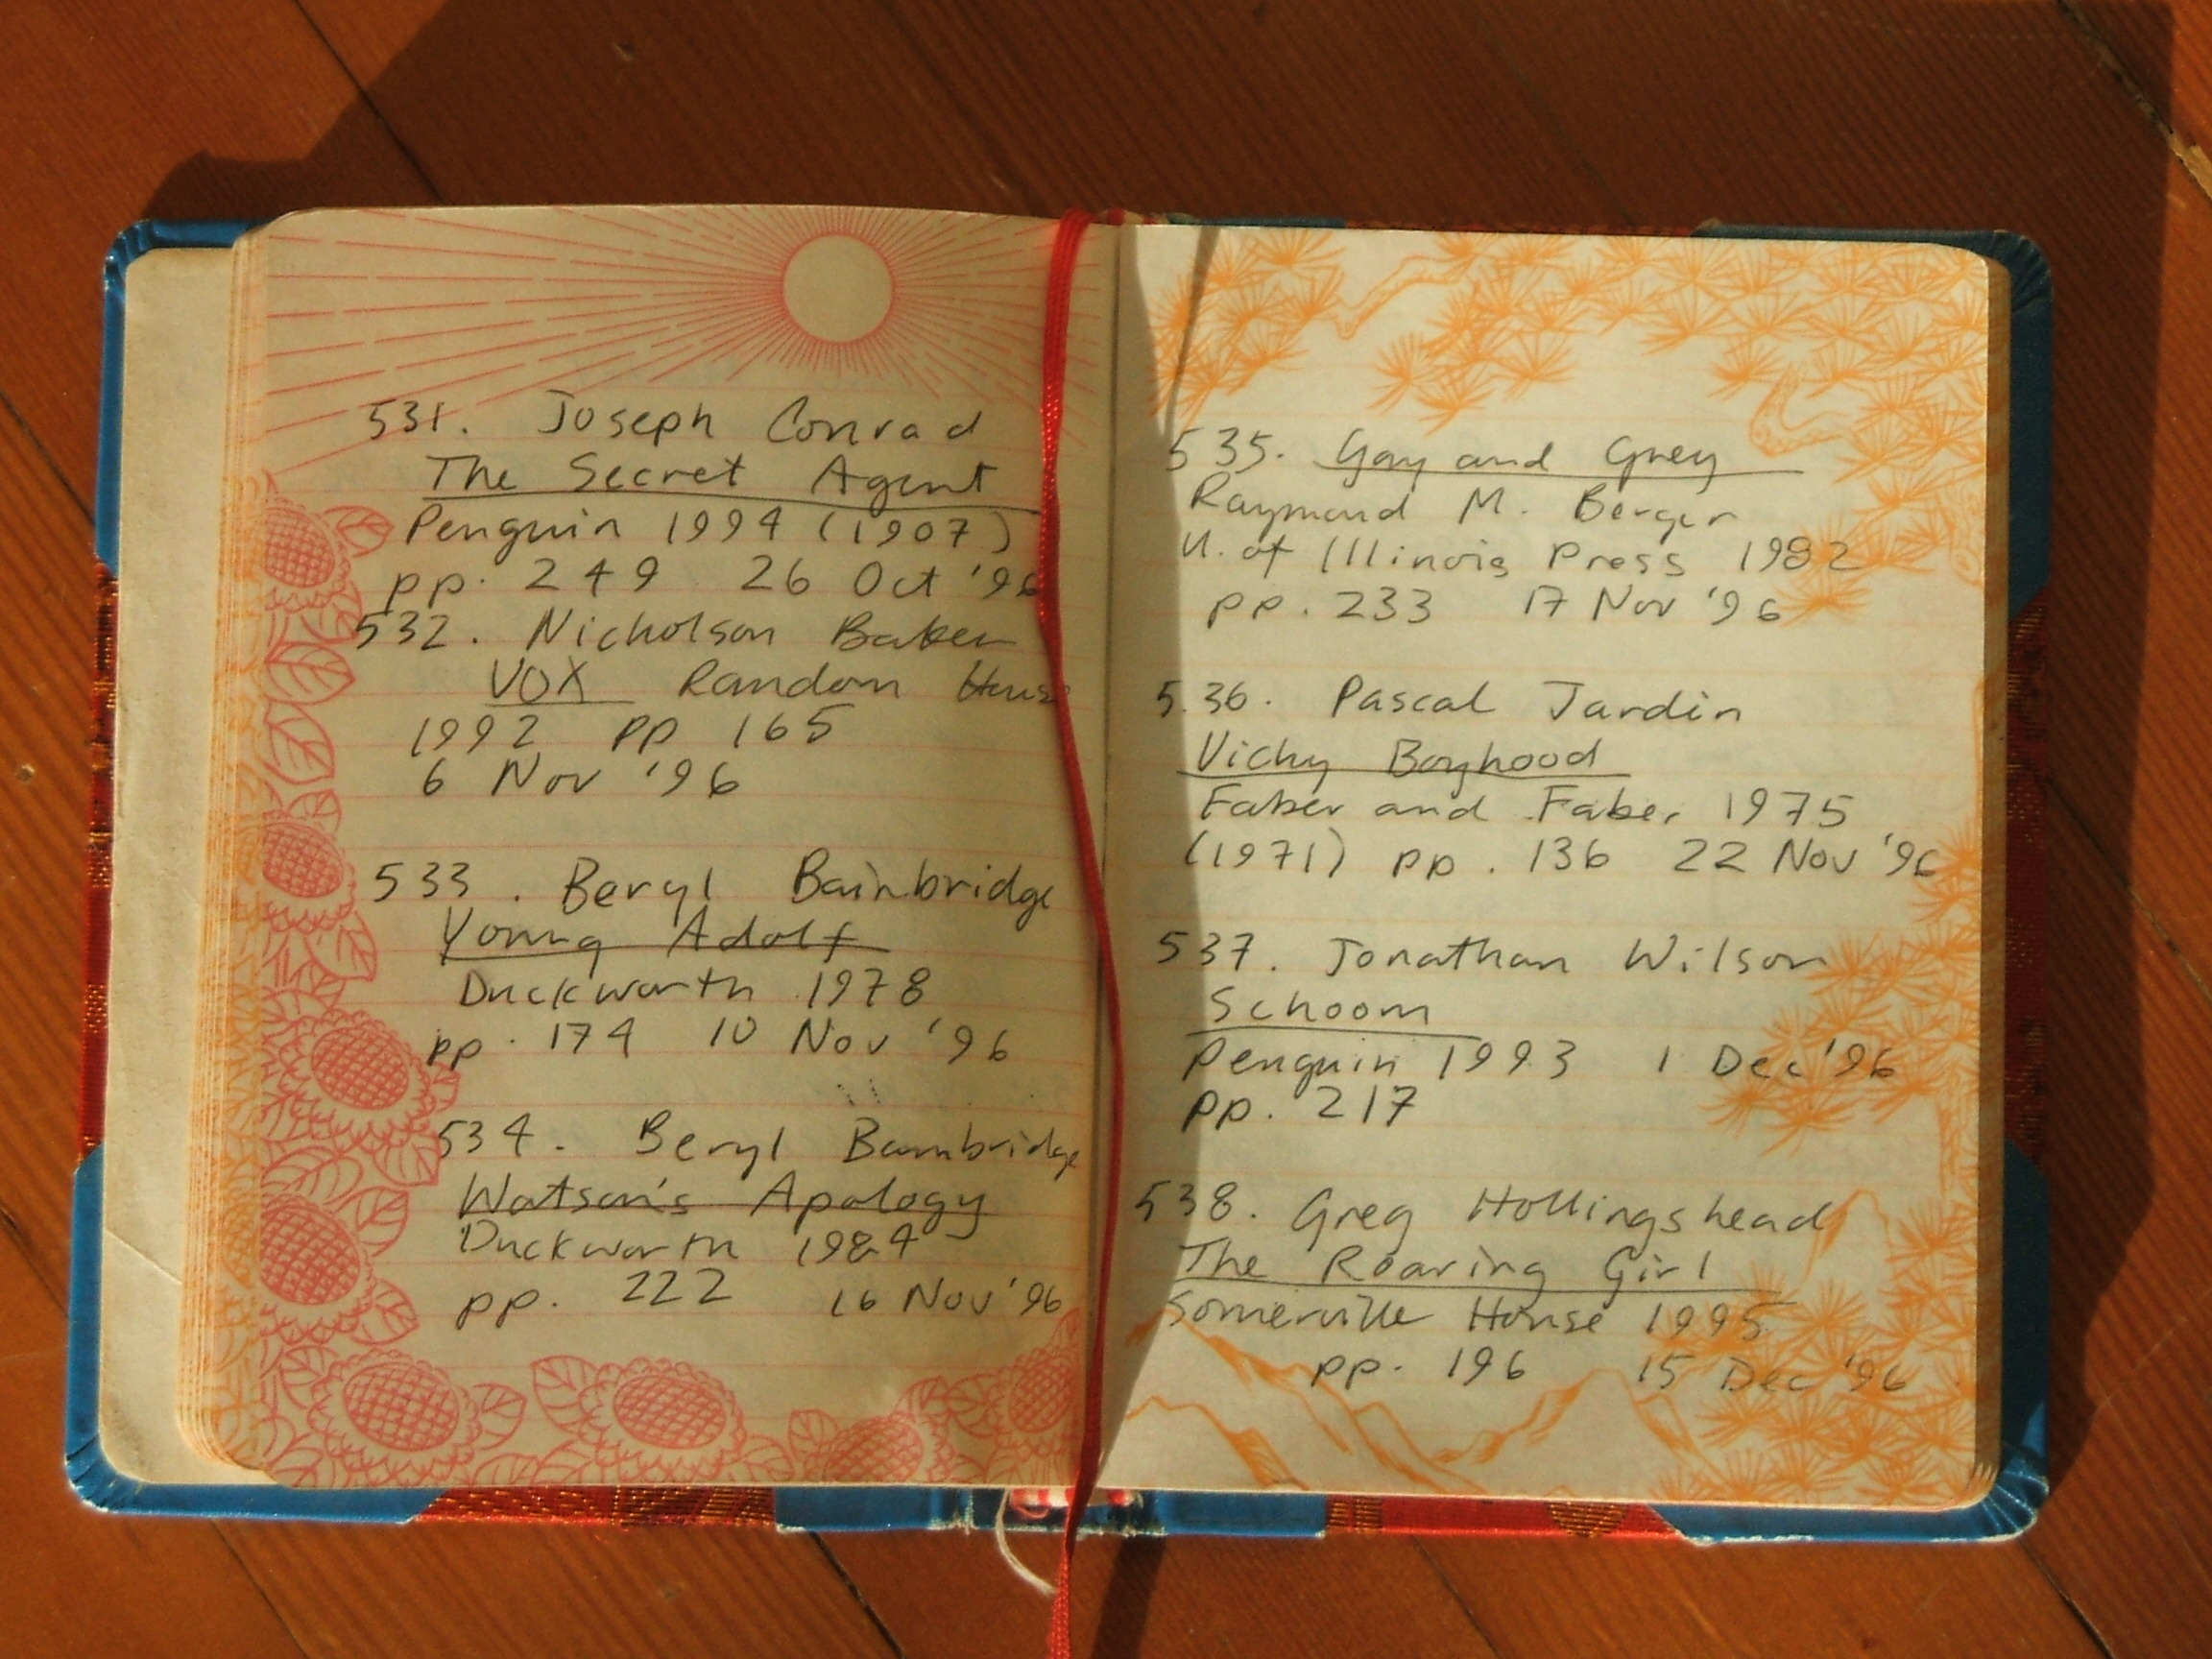 531. Joseph Conrad
The Secret Agent
Penguin 1994 (1907)
pp. 249 26 Oct '96
532. Nicholson Baker
VOX Random House
1992 pp 165
6 Nov '96
533. Beryl Bainbridge
Young Adolf
Duckworth 1978
pp. 174 10 Nov '96
534. Beryl Bainbridge
Watson's Apology
Duckworth 1984
pp. 222 16 Nov '96
535. Gay and Grey
Raymond M. Berger
U. of Illinois Press 1982
pp. 233 17 Nov '96
536. Pascal Jardin
Vichy Boyhood
Faber and Faber 1975
(1971) pp. 136 22 Nov '96
537. Jonathan Wilson
Schoom
Penguin 1993 1 Dec '96
pp. 217
538. Greg Hollingshead
The Roaring Girl
Somerville House 1995
pp. 196 15 Dec '96